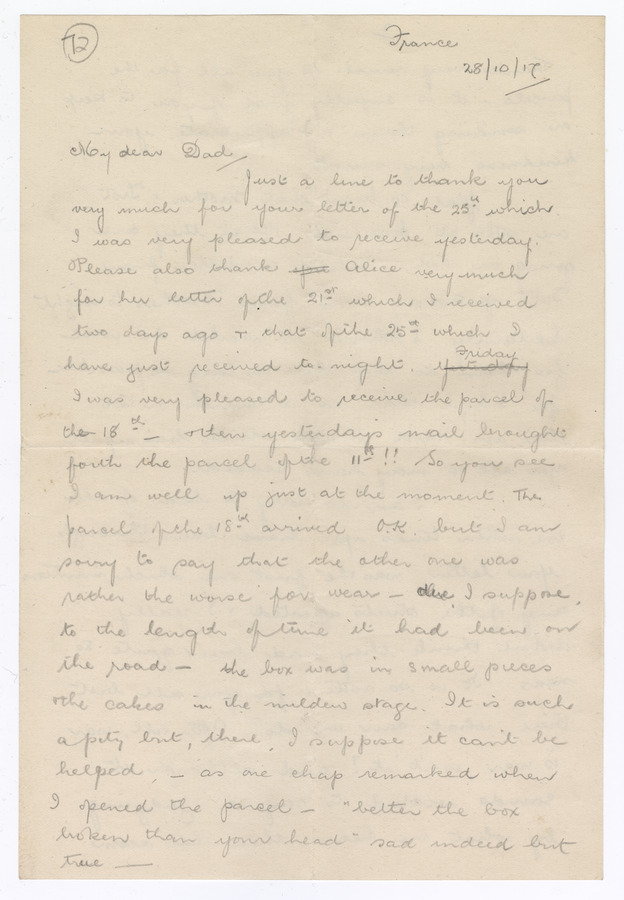 72
France
28/10/17
My dear Dad/
Just a line to thank you
very much for your letter of the 25th which
I was very pleased to receive yesterday.
Please also thank Alice very much
for her letter of the 21st which I received
two days ago + that of the 25th which I
have just received to-night. Friday
I was very pleased to receive the parcel of
the 18th — + then yesterday's mail brought
forth the parcel of the 11th!! So you see
I am well up just at the moment. The
parcel of the 18th arrived O.K. but I am
sorry to say that the other one was
rather the worse for wear — due, I suppose,
to the length of time it had been on
the road — the box was in small pieces
+ the cakes in the mildew stage. It is such
a pity but, there, I suppose it can't be
helped, — as one chap remarked when
I opened the parcel — "better the box
broken than your head" sad indeed but
true —